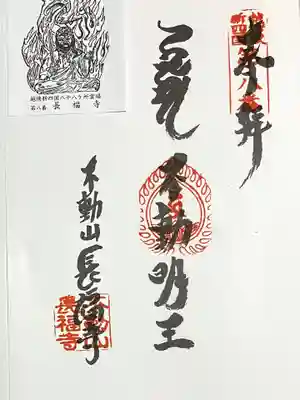 奉拝
不動明王
不動山長福寺
越後新四国八十八ヶ所霊場
第八番 長福寺
長福寺